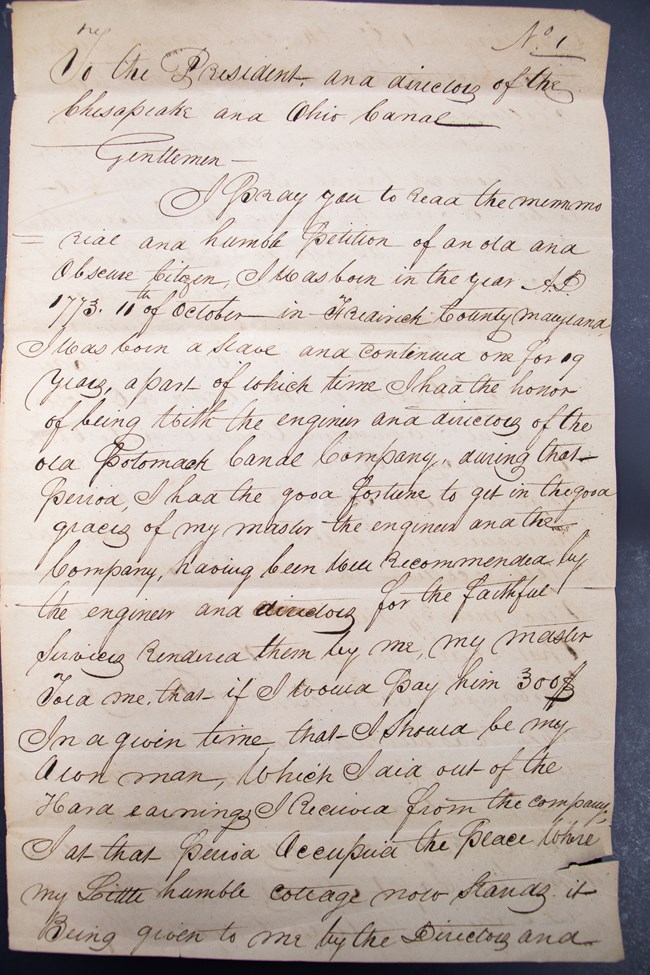 No 1
To the President, and directors of the
Chesapeake and Ohio Canal
Gentlemen —
I Pray you to read the memmo
= rial and humble Petition of an old and
Obscure Citizen, I was born in the year A.D
1773. 11th of October in Fredirick County maryland,
I was born a slave and continued one for 29
years, a part of which time I had the honor
of being With the engineer and directors of the
old Potomack Canal Company, during that
Period, I had the good fortune to get in the good
graces of my master the engineer and the
Company, having been Well Recommended by
the engineer and directors for the faithful
Services Rendered them by me, my master
Told me, that if I would Pay him 300$
In a given time that I should be my
Own man, Which I did out of the
Hard earnings I Received from the company,
I at that Period Occupied the Place Where
my Little humble cottage now Stands it
Being given to me by the Directors and